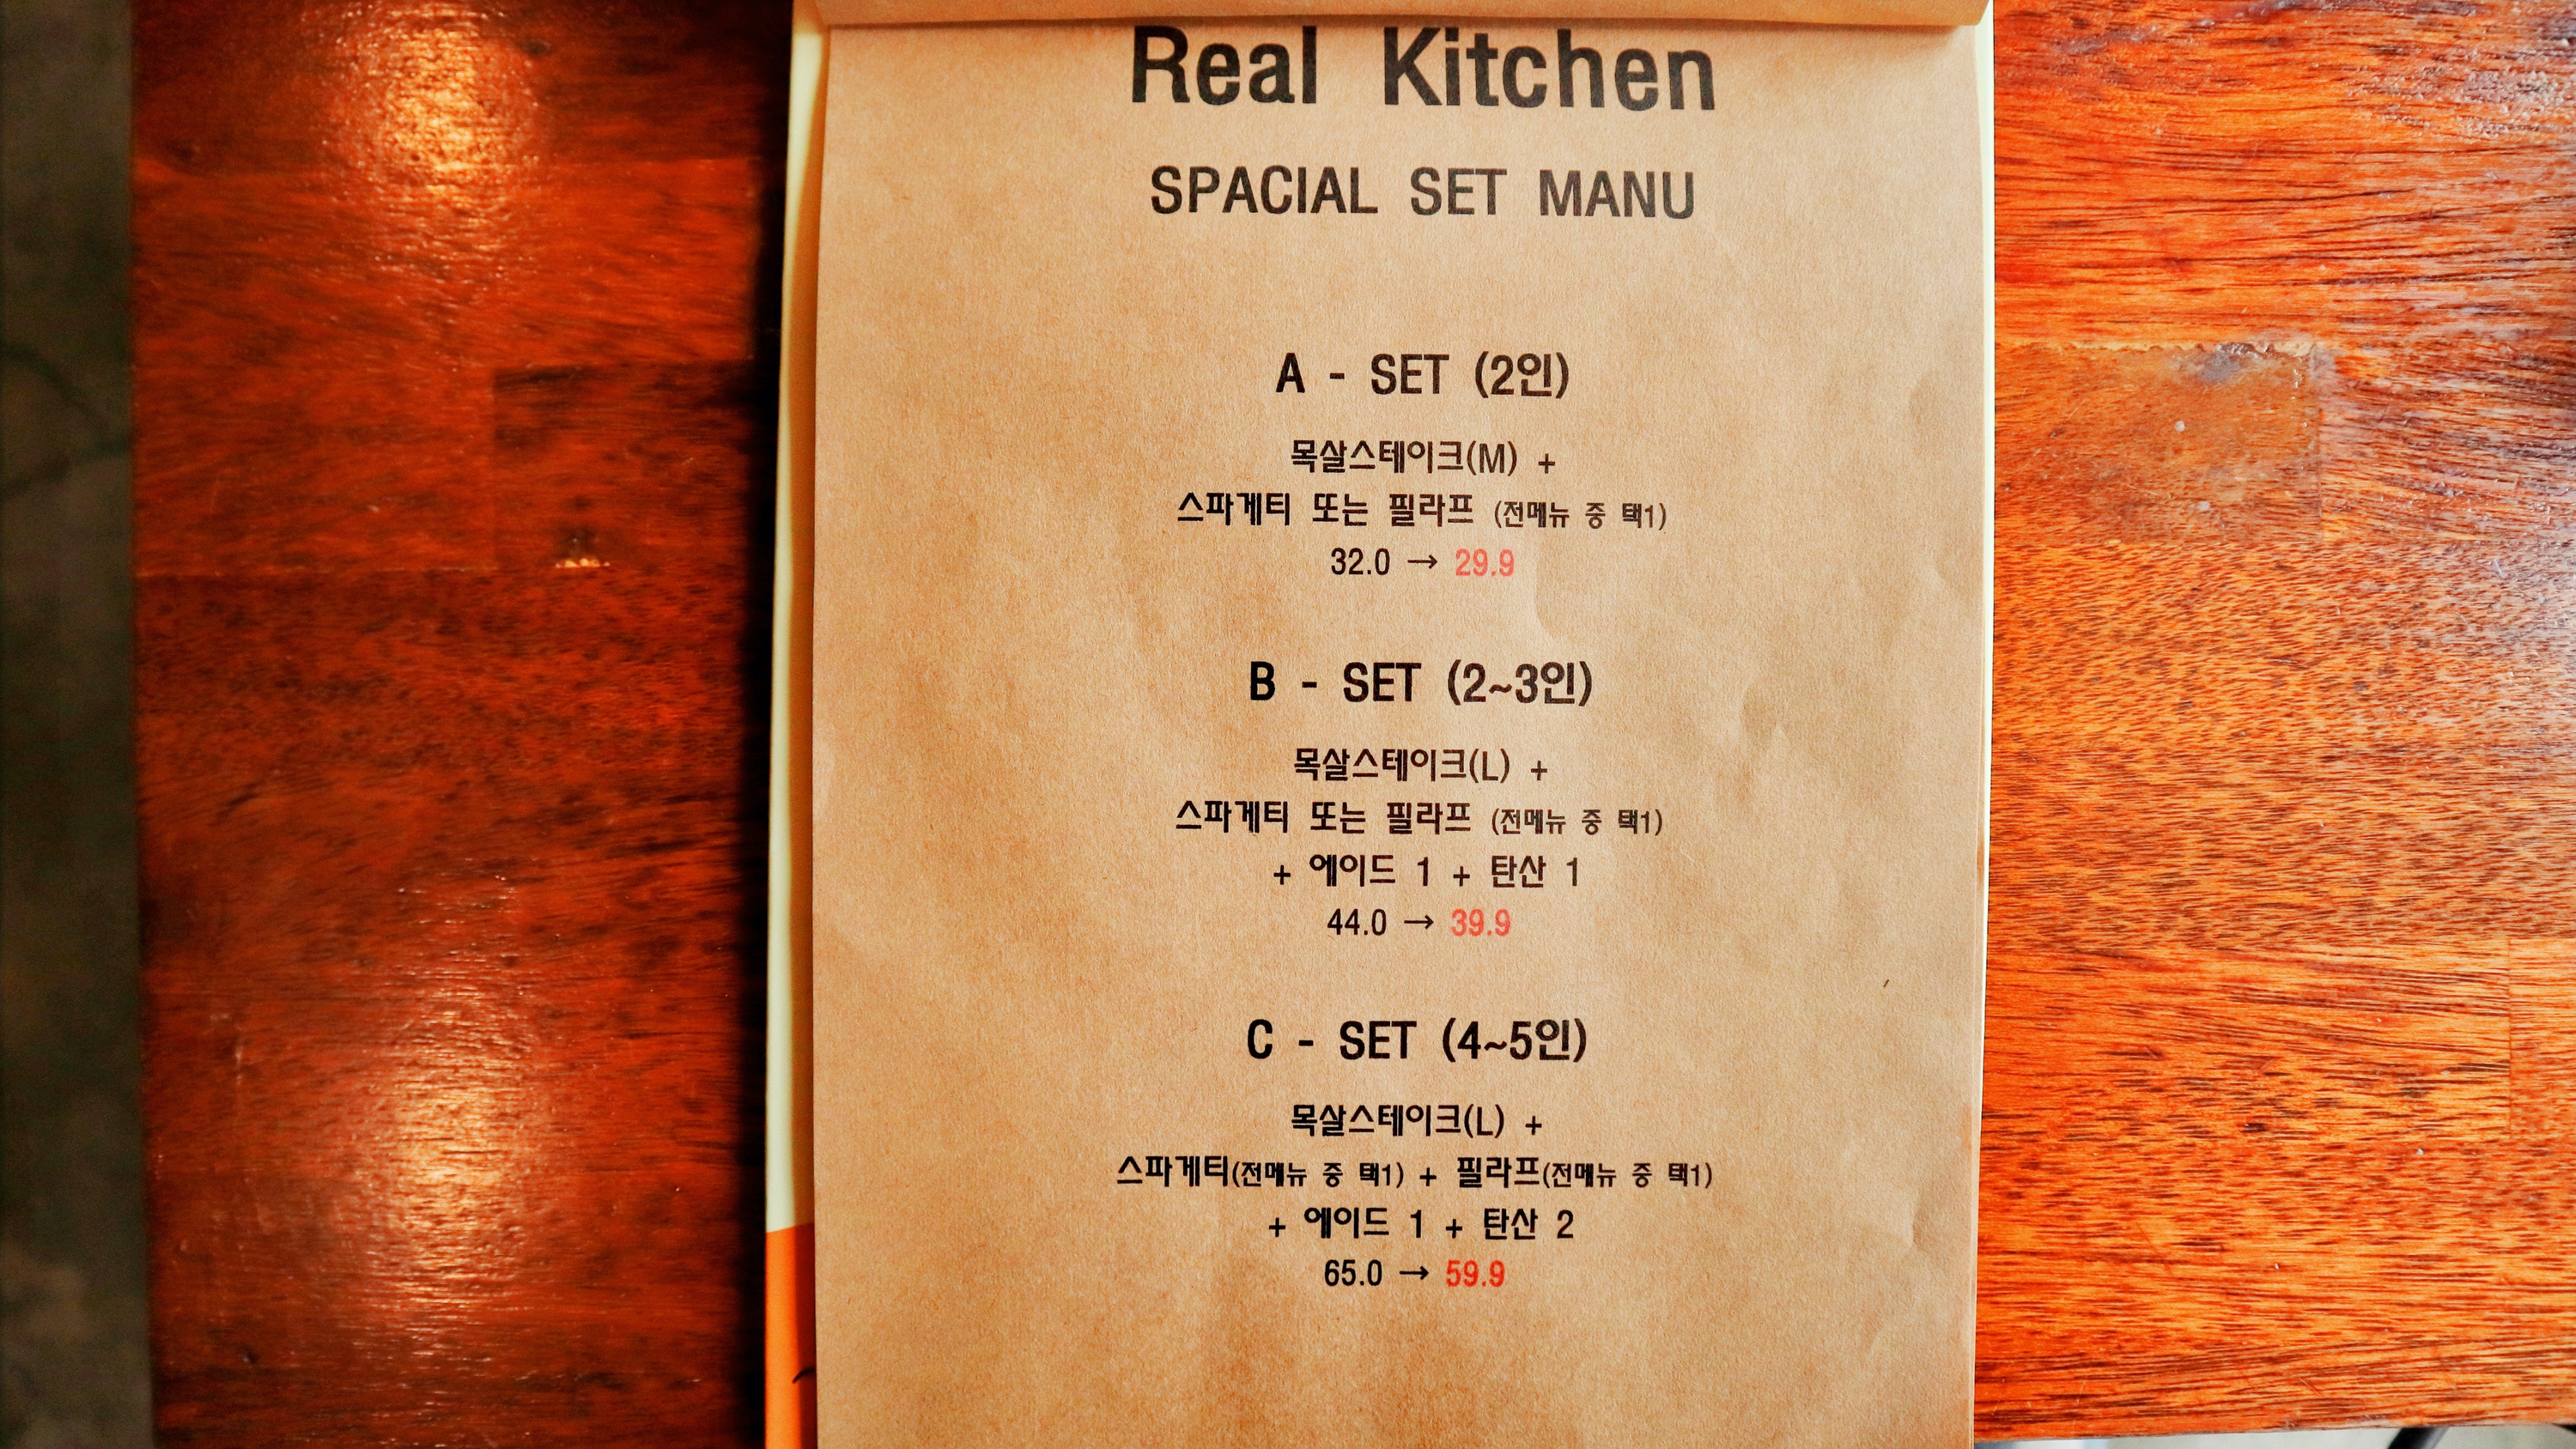 Real Kitchen
SPACIAL SET MANU
A - SET (2인)
목살스테이크(M) +
스파게티 또는 필라프 (전메뉴 중 택1)
32.0 → 29.9
B - SET (2~3인)
목살스테이크(L) +
스파게티 또는 필라프 (전메뉴 중 택1)
+ 에이드 1 + 탄산 1
44.0 → 39.9
C - SET (4~5인)
목살스테이크(L) +
스파게티(전메뉴 중 택1) + 필라프(전메뉴 중 택1)
+ 에이드 1 + 탄산 2
65.0 → 59.9